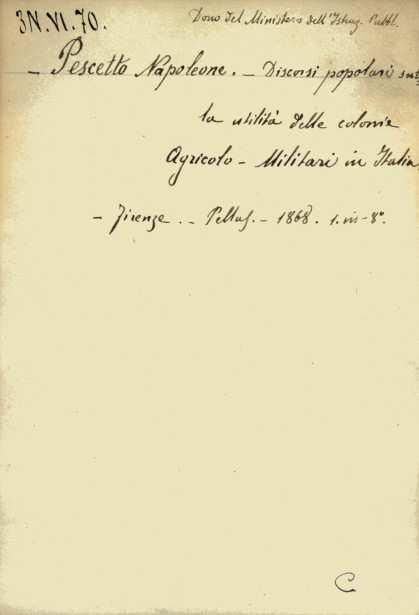 3N.VI.70.
Dono del Ministero dell'Istruz. Pubbl.
- Pescetto Napoleone. - Discorsi popolari sul
la utilità delle colonie
Agricolo - Militari in Italia.
- Firenze. - Pellas. - 1868. 1. in-8°.
C